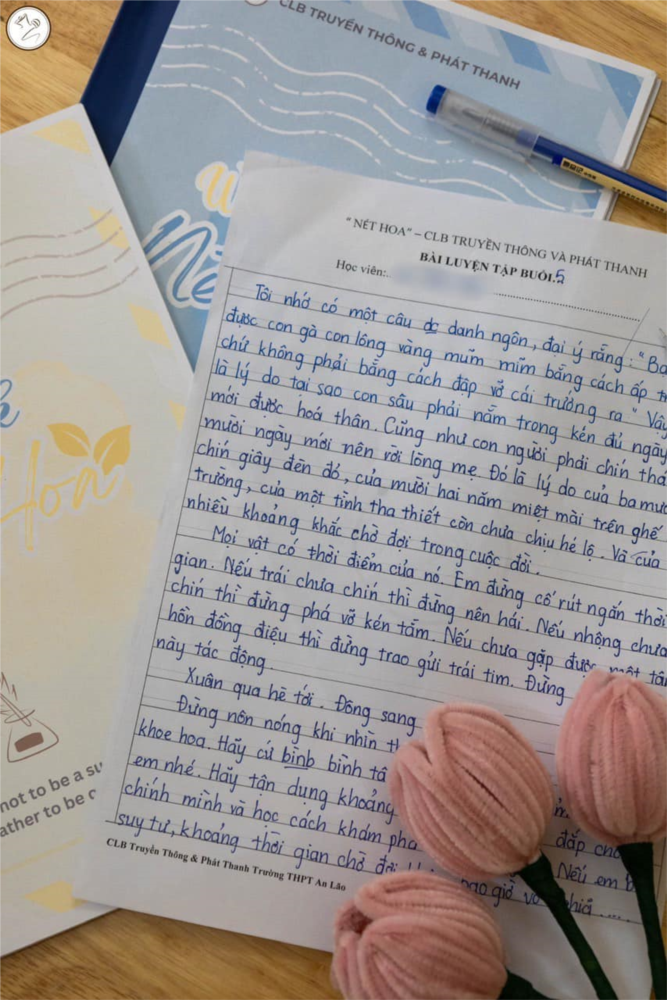 CLB TRUYỀN THÔNG & PHÁT THANH
Nét
Hoa
not to be a
rather to be
" NÉT HOA" – CLB TRUYỀN THÔNG VÀ PHÁT THANH
BÀI LUYỆN TẬP BUỔI.5
Học viên:
Tôi nhớ có một câu dc danh ngôn, đại ý rằng: "Bạn
được con gà con lông vàng mũm mĩm bằng cách ấp
chứ không phải bằng cách đập vỡ cái trưởng ra" Vậy
là lý do tại sao con sâu phải nằm trong kén đủ ngày
mới được hoá thân. Cũng như con người phải chín
mười ngày mới nên rời lòng mẹ. Đó là lý do của ba mươi
chín giây đèn đỏ, của mười hai năm miệt mài trên ghế
trường, của một tình tha thiết còn chưa chịu hé lộ. Và của
nhiều khoảng khắc chờ đợi trong cuộc đời.
Mọi vật có thời điểm của nó. Em đừng cố rút ngắn thời
gian. Nếu trái chưa chín thì đừng nên hái. Nếu nhộng chưa
chín thì đừng phá vỡ kén tằm. Nếu chưa gặp được một
hồn đồng điệu thì đừng trao gửi trái tim. Đừng
này tác động.
Xuân qua hè tới. Đông sang
Đừng nôn nóng khi nhìn
khoe hoa. Hãy cứ bình bình
em nhé. Hãy tận dụng khoảng
chính mình và học cách khám phá đắp
suy tư, khoảng thời gian chờ đợi bao giờ vô nghĩa.... Nếu em
CLB Truyền Thông & Phát Thanh Trường THPT An Lão